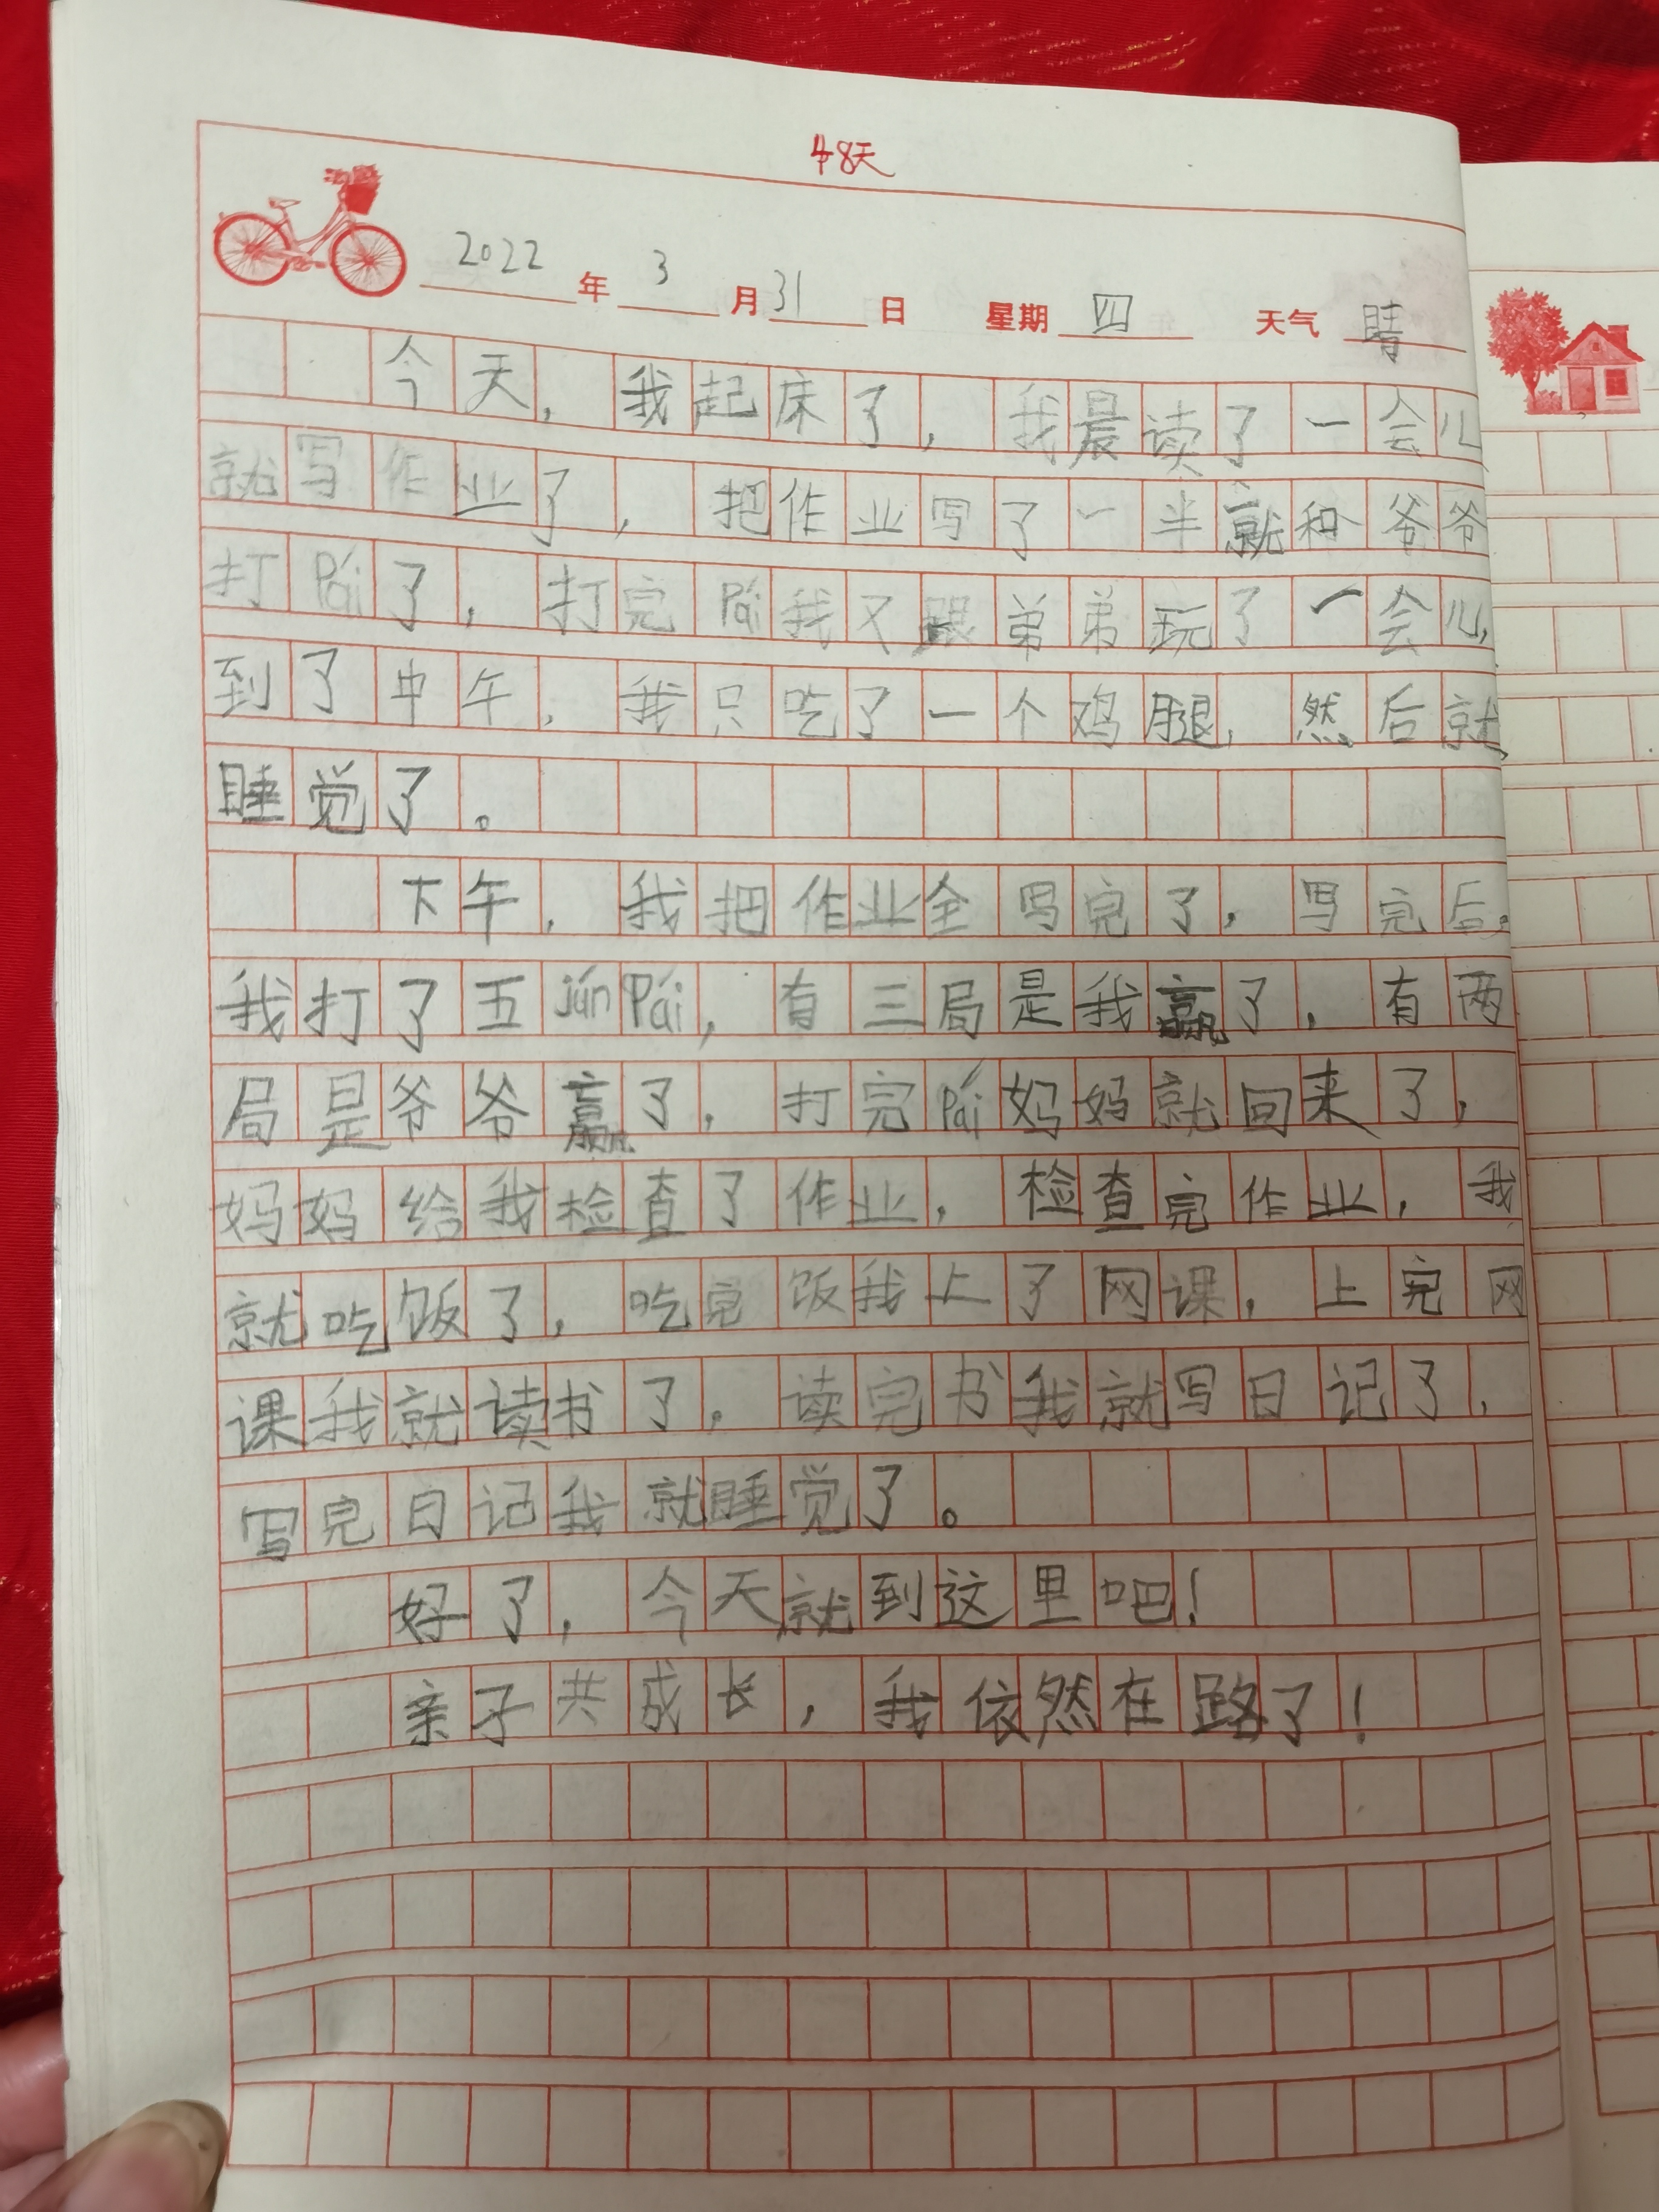 48天
2022年3月31日 星期四 天气晴
今天，我起床了，我晨读了一会儿
就写作业了，把作业写了一半就和爷爷
打pái了，打完pái我又跟弟弟玩了一会儿，
到了中午，我只吃了一个鸡腿，然后就
睡觉了。
下午，我把作业全写完了，写完后，
我打了五júnpái，有三局是我赢了，有两
局是爷爷赢了，打完pái妈妈就回来了，
妈妈给我检查了作业，检查完作业，我
就吃饭了，吃完饭我上了网课，上完网
课我就读书了，读完书我就写日记了，
写完日记我就睡觉了。
好了，今天就到这里吧！
亲子共成长，我依然在路了！